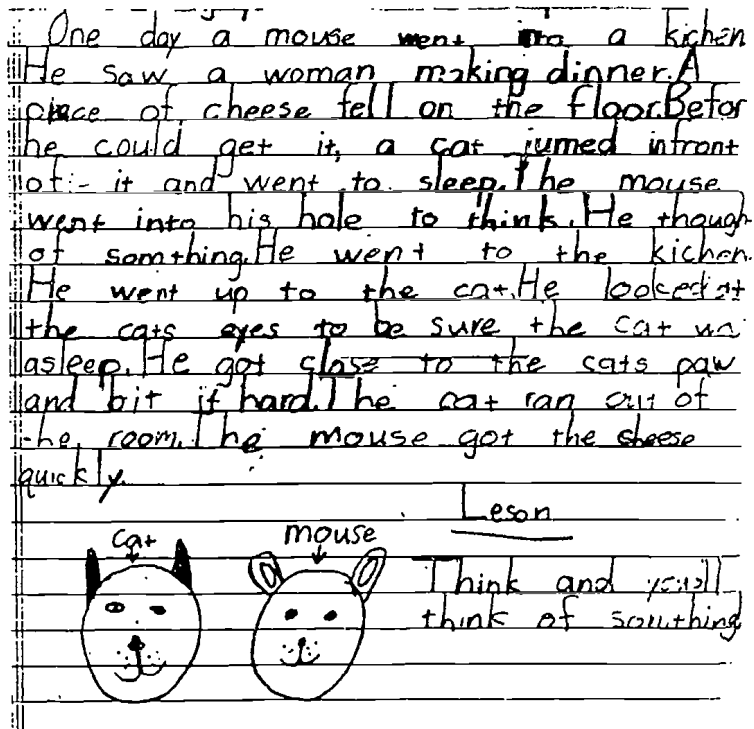 One day a mouse went into a kichen
He saw a woman making dinner. A
piece of cheese fell on the floor. Befor
he could get it, a cat jumed infront
of it and went to sleep. The mouse
went into his hole to think. He though
of somthing. He went to the kichen.
He went up to the cat. He looked at
the cats eyes to be sure the cat
asleep. He got close to the cats paw
and bit it hard. The cat ran out of
the room. The mouse got the cheese
quickly.
Leson
cat
mouse
Think and you'll
think of somthing